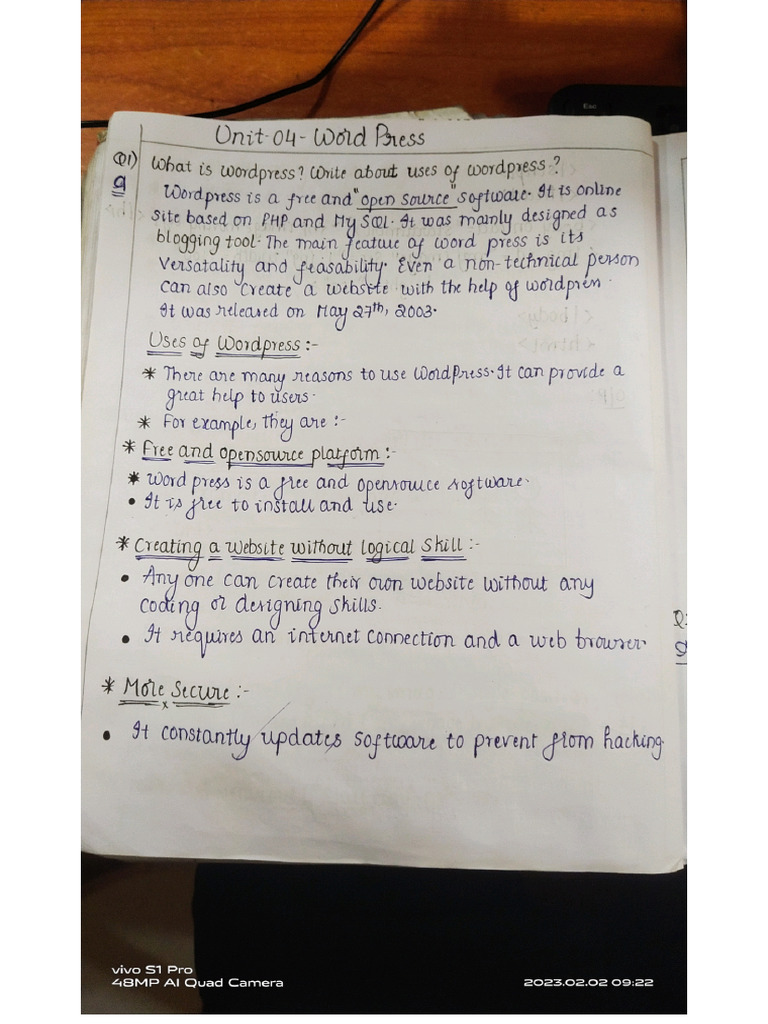 Unit-04-Word Press
Q1) What is wordpress? Write about uses of wordpress?
a Wordpress is a free and "open source" software. It is online
site based on PHP and My SQL. It was mainly designed as
blogging tool. The main feature of word press is its
versatality and feasability. Even a non-technical person
can also create a website with the help of wordpress.
It was released on May 27th, 2003.
Uses of Wordpress:-
* There are many reasons to use WordPress. It can provide a
great help to users.
* For example, they are:-
* Free and opensource platform:-
* Word press is a free and opensource software.
• It is free to install and use.
* Creating a website without logical skill:-
• Any one can create their own website without any
coding or designing skills.
• It requires an internet connection and a web browser
* More Secure:-
• It constantly updates software to prevent from hacking.
Esc
vivo S1 Pro
48MP AI Quad Camera
2023.02.02 09:22